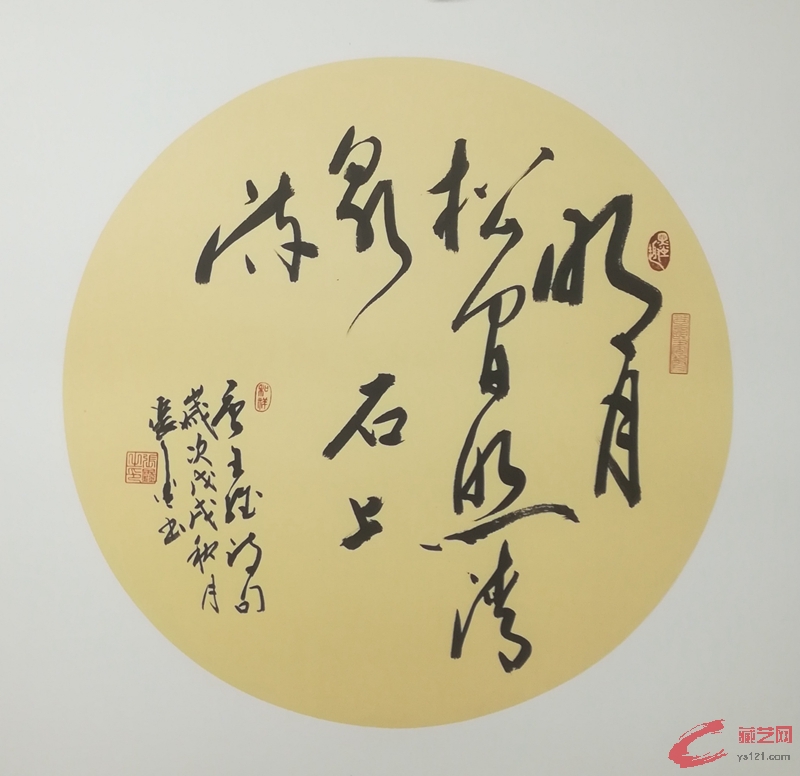 明月
松间照清
泉石上
流
唐王维诗句
歲次戊戌秋月
书
藏艺网
ys121.com